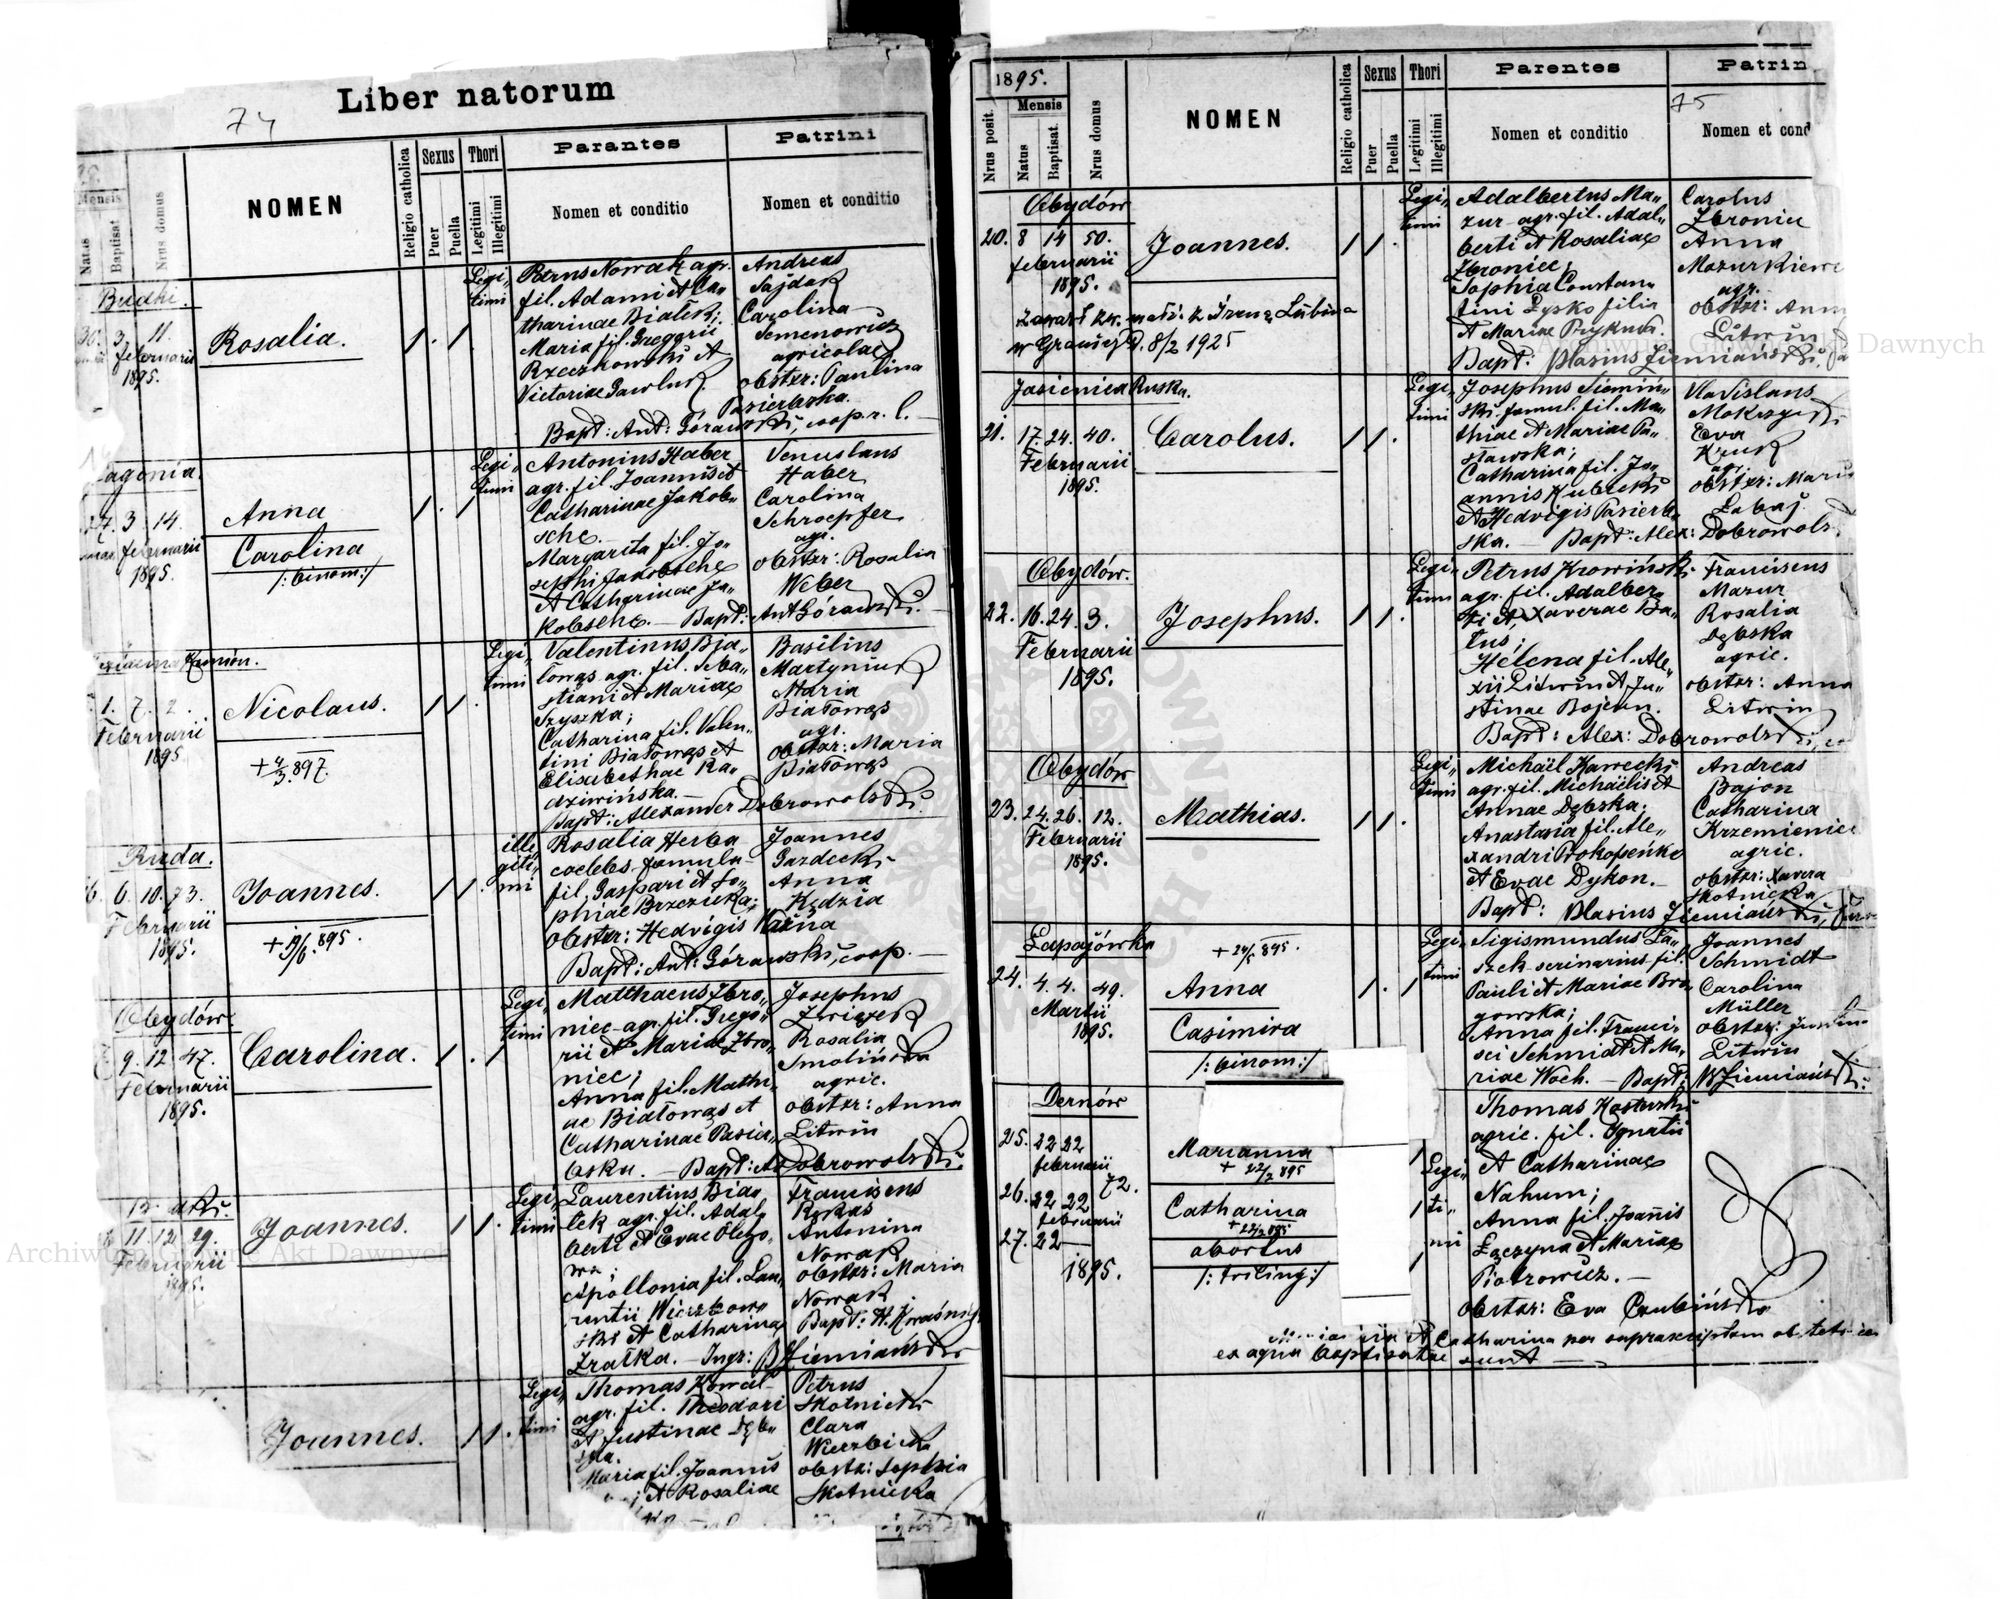 Liber natorum
74
Mensis
Natus
Baptisat
Nrus domus
NOMEN
Religio catholica
Sexus
Puer
Puella
Thori
Legitimi
Illegitimi
Parantes
Nomen et conditio
Patrini
Nomen et conditio
Budki.
3. 11.
februarii
1895.
Rosalia.
Legi
timi
Petrus Nowak agr.
fil. Adami et Ca-
tharinae Białek;
Maria fil. Greggrii
Rzeczkowski et
Victoriae Pawluk
Andreas
Sajdak
Carolina
Semenowicz
agricolae
obster: Paulina
Pasierbska
Bapt: Ant: Górawski, coop. r. l.
agonia.
27. 3. 14.
februarii
1895.
Anna
Carolina
/:binom:/
Legi
timi
Antonius Haber
agr. fil. Joannis et
Catharinae Jakob-
sche.
Margarita fil. Jo-
sephi Jakobsche
et Catharinae Ja-
kobsche. — Bapt: Ant Górawski.
Venuslaus
Haber
Carolina
Schroepfer
agr.
obster: Rosalia
Weber
1. 7. 2.
Februarii
1895.
Nicolaus.
+ 4/3 897.
Legi
timi
Valentinus Bia-
łowąs agr. fil. Seba-
stiani et Mariae
Szyszka;
Catharina fil. Valen-
tini Białowąs et
Elisabethae Ra-
dziwińska. —
Bapt: Alexander Dobrowolski.
Basilius
Martyniuk
Maria
Białowąs
agr.
obster: Maria
Białowąs
Ruda.
6. 10. 73.
Februarii
1895.
Joannes.
ille
giti
mi
Rosalia Herba
coelebs famula
fil. Gaspari et So-
phiae Brzezicka;
obster: Hedvigis Kaźna
Bapt: Ant: Górawski, coop. —
Joannes
Gazdecki
Anna
Kędzia
Obydów.
9. 12. 47.
Februarii
1895.
Carolina.
Legi
timi
Matthaeus Zbro-
niec agr. fil. Grego-
rii et Mariae Zbro-
niec;
Anna fil. Mathi-
ae Białowąs et
Catharinae Pasier-
bska. — Bapt: A Dobrowolski.
Josephus
Zwiezek
Rosalia
Smolińska
agric.
obster: Anna
Litwin
11. 12. 29.
Februarii
1895.
Joannes.
Legi
timi
Laurentius Bia-
łek agr. fil. Adal-
berti et Evae Olejo-
wa;
Apollonia fil. Lau-
rentii Wierzbow-
ski et Catharinae
Zratka. — Ingr: B Ziemiański
Francisus
Rękas
Antonina
Nowak
obster: Maria
Nowak
Joannes.
Legi
timi
Thomas Kowal
agr. fil. Theodori
et Justinae Dęb-
ska.
Maria fil. Joannis
et Rosaliae
Petrus
Skotnicki
Clara
Wierzbicka
obster: Sophia
Skotnicka
1895.
Nrus posit.
Mensis
Natus
Baptisat.
Nrus domus
NOMEN
Religio catholica
Sexus
Puer
Puella
Thori
Legitimi
Illegitimi
Parentes
Nomen et conditio
Patrin
75
Nomen et cond
Obydów
20. 8 14 50.
februarii
1895.
Joannes.
w D. 8/2 1925
Legi
timi
Adalbertus Ma-
zur agr. fil. Adal-
berti et Rosaliae
Zbroniec;
Sophia Constan-
tini Dysko filia
et Mariae Prykuda.
Bapt: Blasius Ziemiański,
Carolus
Zbroniec
Anna
Mazurkiewi
agr.
obster: Ann
Litwin
Jasienica Ruska.
21. 17. 24. 40.
Februarii
1895.
Carolus.
Legi
timi
Josephus Siemin-
ski famul. fil. Ma-
thiae et Mariae Pa-
stawska;
Catharina fil. Jo-
annis Kubicki
et Hedvigis Pasierb-
ska. — Bapt: Alex: Dobrowols
Vladislaus
Mokrzycki
Eva
Kruk
agr.
obster: Maria
Labaj.
Obydów.
22. 16. 24. 3.
Februarii
1895.
Josephus.
Legi
timi
Petrus Krowiński
agr. fil. Adalber-
ti et Xaverae Ba-
tus;
Helena fil. Ale-
xii Litwin et Ju-
stinae Bojcun.
Bapt: Alex: Dobrowolski,
Francisus
Mazur
Rosalia
Dębska
agric.
obster: Anna
Litwin
Obydów
23. 24. 26. 12.
Februarii
1895.
Mathias.
Legi
timi
Michaël Kawecki
agr. fil. Michaëlis et
Annae Dębska;
Anastasia fil. Ale-
xandri Prokopeńko
et Evae Dykon. —
Bapt: Blasius Ziemiański,
Andreas
Bajon
Catharina
Krzemieniec
agric.
obster: Xavera
Skotnicka
Łapajówka
24. 4. 4. 49.
Martii
1895.
Anna
Casimira
/:binom:/
Legi
timi
Sigismundus Ła-
szek scrinarius fil.
Pauli et Mariae Bro-
gowska;
Anna fil. Franci-
sci Schmidt et Ma-
riae Woch. — Bapt: B Ziemiański.
Joannes
Schmidt
Carolina
Müller
Litwin
Dernów
25. 22 22
februarii
72.
26. 22 22
februarii
27. 22 —
1895.
Marianna
+ 22/2 895
Catharina
+ 22/2 895
abortus
/:triling:/
Legi
ti
mi
Thomas Kosturski
agric. fil. Ignatii
et Catharinae
Nahum;
Anna fil. Joannis
Łączyna et Mariae
Piotrowicz. —
obster: Eva Czubińska
et Catharina per suprascriptam obstetricem
ex aqua baptisatae sunt —
Archiwum Główne Akt Dawnych
Archiwum Główne Akt Dawnych